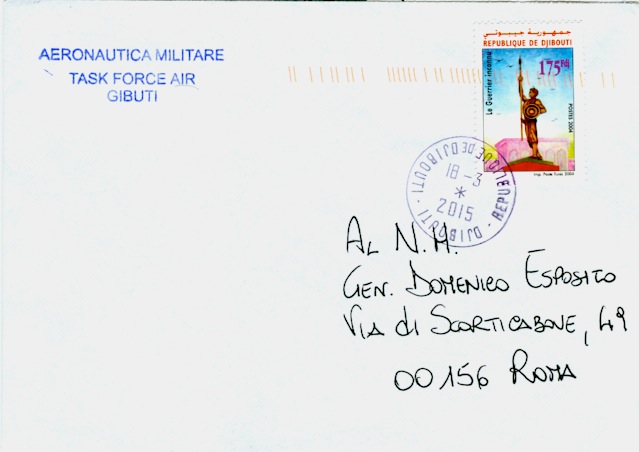 AERONAUTICA MILITARE
TASK FORCE AIR
GIBUTI
جمهورية جيبوتي
REPUBLIQUE DE DJIBOUTI
175 Fd
Le Guerrier inconnu
POSTES 2004
Imp. Poste Tunis 2004
REPUBLIQUE DE DJIBOUTI
18-3
*
2015
- DJIBOUTI -
AL N.H.
GEN. DOMENICO ESPOSITO
VIA di SCORTICABOVE, 49
00156 ROMA